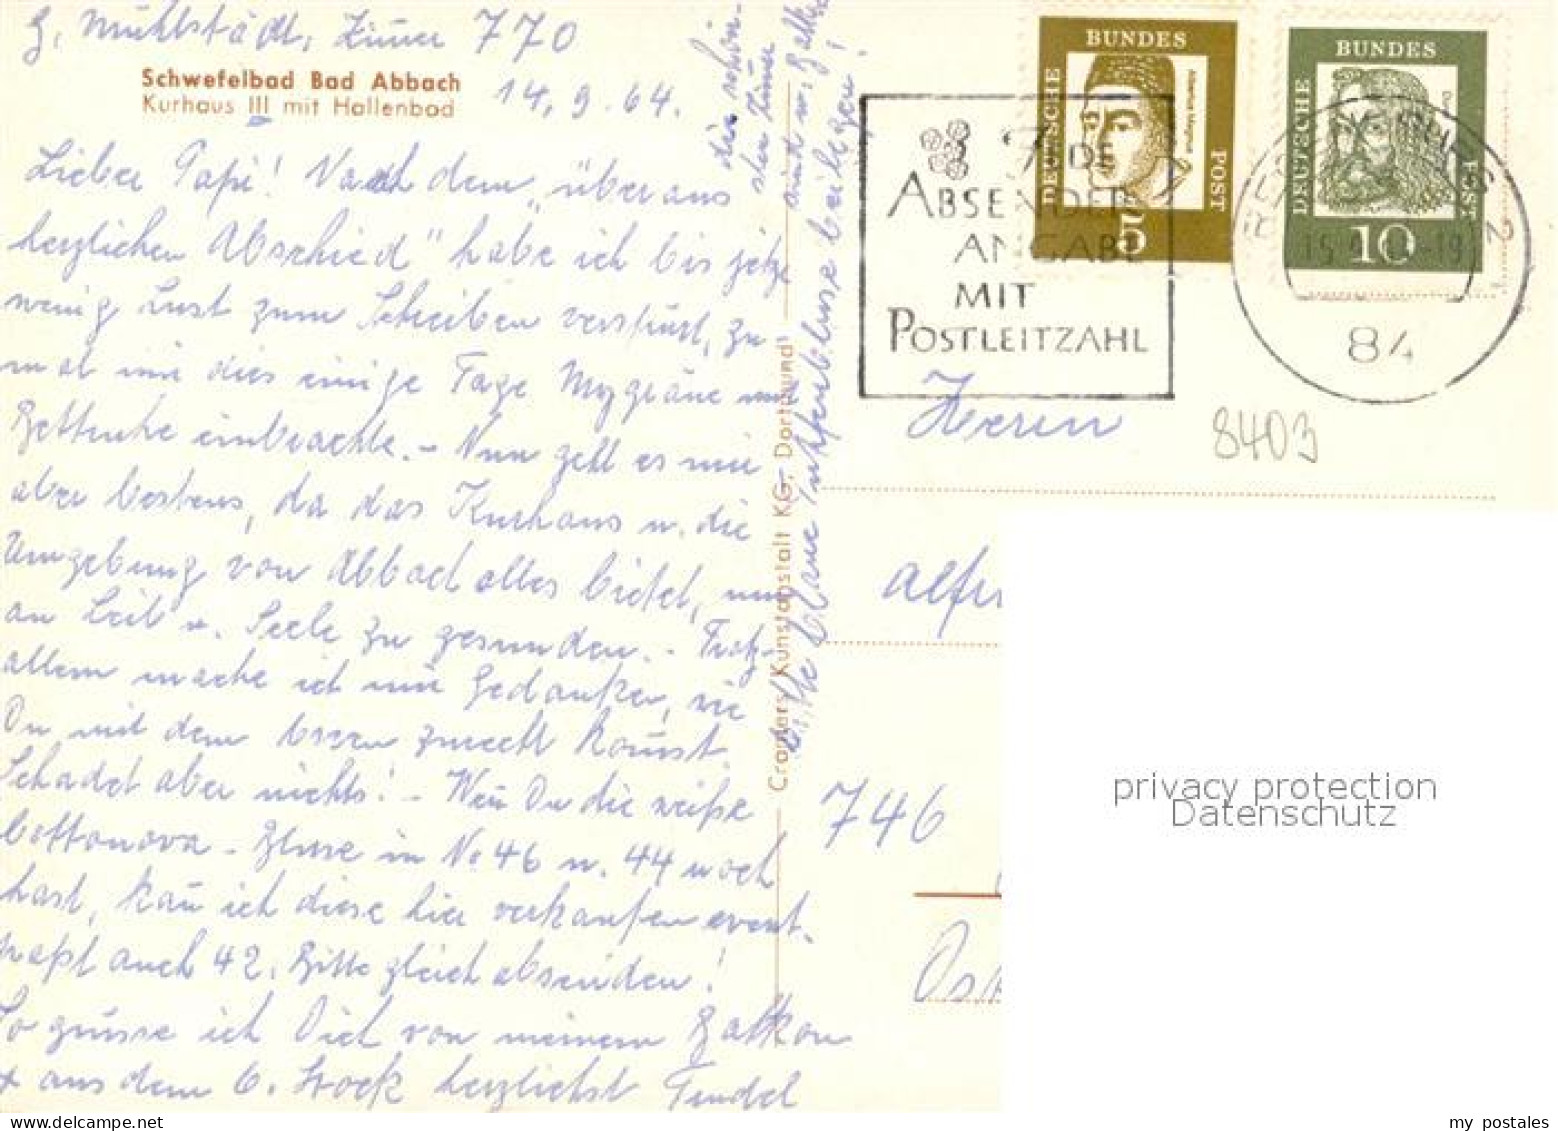 G. Mühlstädt, Zimmer 770
Schwefelbad Bad Abbach
Kurhaus III mit Hallenbad
14.9.64.
Lieber Papi! Nach dem „überaus
herzlichen Abschied" habe ich bis jetzt
wenig Lust zum Schreiben verspürt, zu-
mal mir dies einige Tage Mygräne und
Bettruhe einbrachte. - Nun geht es mir
aber bestens, da das Kurhaus u. die
Umgebung von Abbach alles bietet, um
an Leib u. Seele zu gesunden. - Trotz-
allem mache ich mir Gedanken, wie
Du mit dem Essen zurecht kom̅st.
Schadet aber nichts! - Wen̅ Du die weiße
Cottonova-Bluse in Nr 46 u. 44 noch
hast, kan̅ ich diese hier verkaufen event.
paßt auch 42. Bitte gleich absenden!
So grüsse ich Dich von meinem Balkon
aus dem 6. Stock herzlichst
die schön-
sten Zimmer
sind m. Balkon
bitte blaue beilegen!
Cramers Kunstanstalt KG, Dortmund
DEUTSCHE BUNDES POST
Albertus Magnus
5
DEUTSCHE BUNDES POST
10
ABSENDER
ANGABE
MIT
POSTLEITZAHL
84
Herrn
8403
746
privacy protection
Datenschutz
my postales